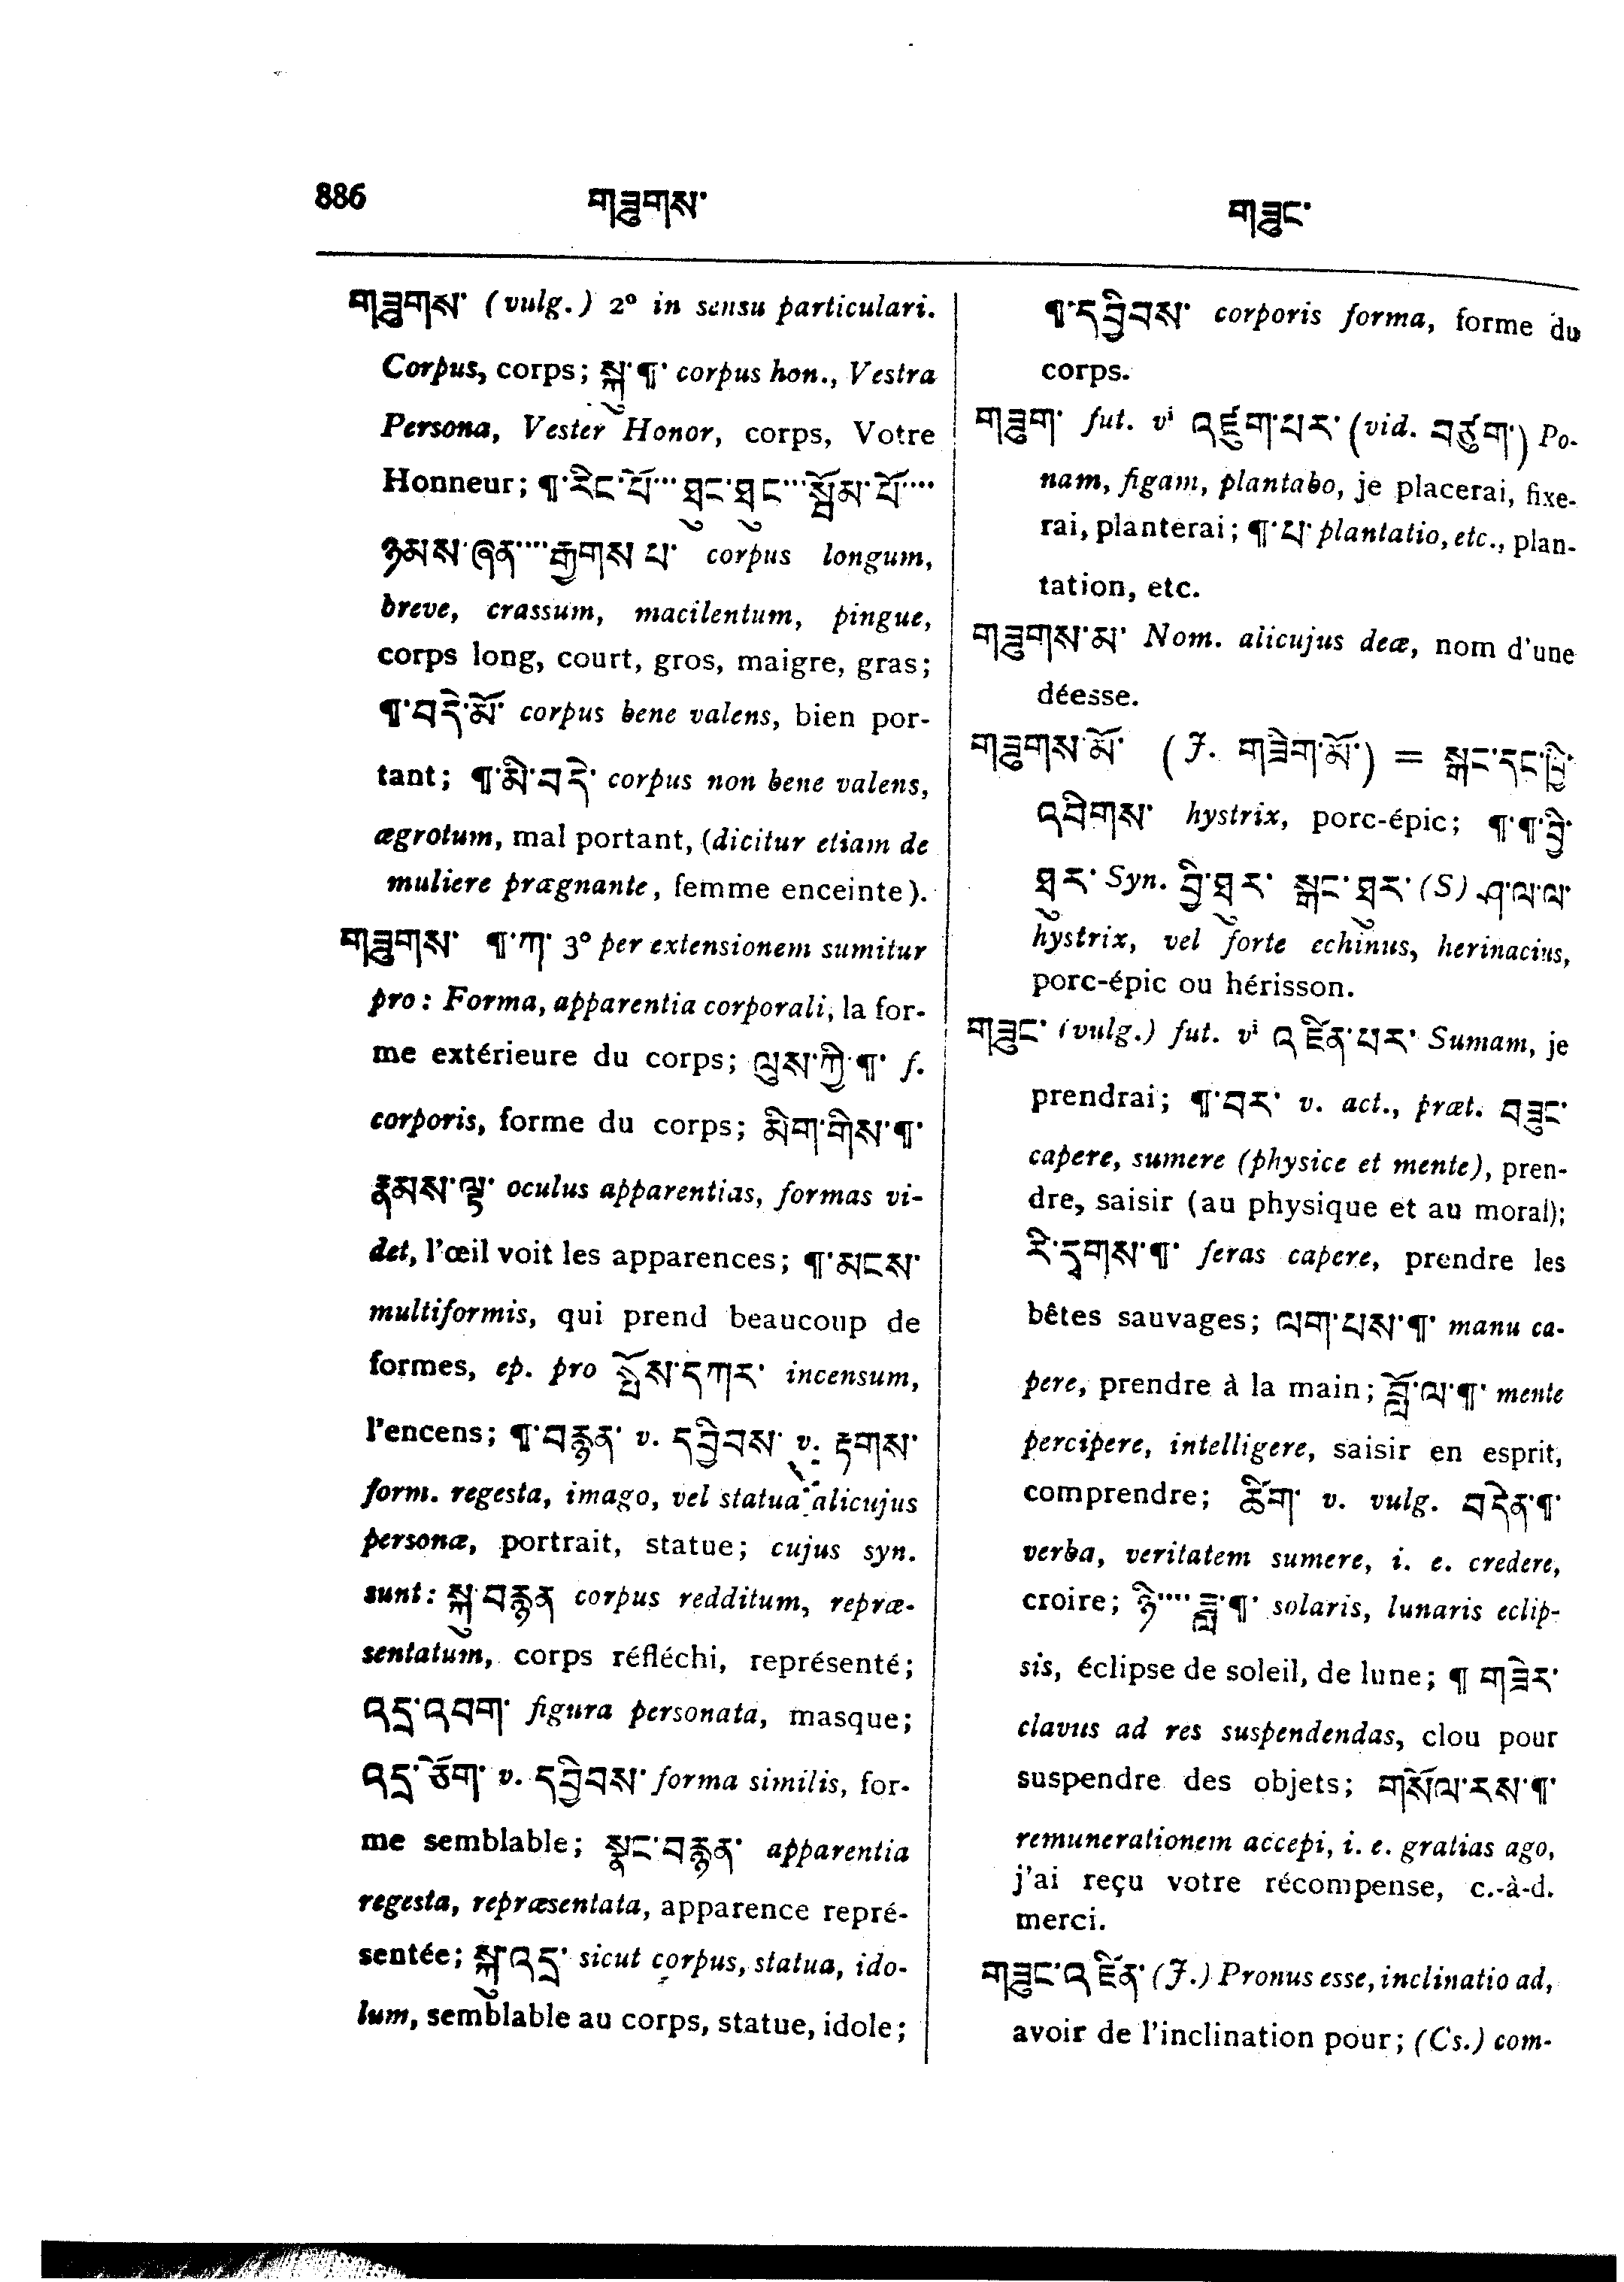 886 གཟུགས་ གཟུང་
གཟུགས་ (vulg.) 2º in sensu particulari.
Corpus, corps; སྐུ་¶་ corpus hon., Vestra
Persona, Vester Honor, corps, Votre
Honneur; ¶་རིང་པོ་... ཐུང་ཐུང་...སྦོམ་པོ་....
ཉམས་ཞན་....རྒྱགས་པ་ corpus longum,
breve, crassum, macilentum, pingue,
corps long, court, gros, maigre, gras;
¶་བདེ་མོ་ corpus bene valens, bien por-
tant; ¶་མི་བདེ་ corpus non bene valens,
ægrotum, mal portant, (dicitur etiam de
muliere prægnante, femme enceinte).
གཟུགས་ ¶་ཀ་ 3º per extensionem sumitur
pro: Forma, apparentia corporali, la for-
me extérieure du corps; ལུས་ཀྱི་¶་ f.
corporis, forme du corps; མིག་གིས་¶་
རྣམས་ལྟ་ oculus apparentias, formas vi-
det, l'œil voit les apparences; ¶་མངས་
multiformis, qui prend beaucoup de
formes, ep. pro སྤོས་དཀར་ incensum,
l'encens; ¶་བརྙན་ v. དབྱིབས་ v. རྟགས་
form. regesta, imago, vel statua alicujus
personæ, portrait, statue; cujus syn.
sunt: སྐུ་བརྙན corpus redditum, repræ-
sentatum, corps réfléchi, représenté;
འདྲ་འབག་ figura personata, masque;
འདྲ་ཅོག་ v. དབྱིབས་ forma similis, for-
me semblable; སྣང་བརྙན་ apparentia
regesta, repræsentata, apparence repré-
sentée; སྐུ་འདྲ་ sicut corpus, statua, ido-
lum, semblable au corps, statue, idole;
¶་དབྱིབས་ corporis forma, forme du
corps.
གཟུག་ fut. vⁱ འཛུག་པར་ (vid. བཙུག་) Po-
nam, figam, plantabo, je placerai, fixe-
rai, planterai; ¶་པ་ plantatio, etc., plan-
tation, etc.
གཟུགས་མ་ Nom. alicujus deæ, nom d'une
déesse.
གཟུགས་མོ་ (J. གཟེག་མོ་) = སྒང་དང་ཕྱི་
འབིགས་ hystrix, porc-épic; ¶་¶་བྱི་
ཐུར་ Syn. བྱི་ཐུར་ སྒང་ཐུར་ (S) ཤ་ལ་ལ་
hystrix, vel forte echinus, herinacius,
porc-épic ou hérisson.
གཟུང་ (vulg.) fut. vⁱ འཛིན་པར་ Sumam, je
prendrai; ¶་བར་ v. act., præt. བཟུང་
capere, sumere (physice et mente), pren-
dre, saisir (au physique et au moral);
རི་དྭགས་¶་ feras capere, prendre les
bêtes sauvages; ལག་པས་¶་ manu ca-
pere, prendre à la main; བློ་ལ་¶་ mente
percipere, intelligere, saisir en esprit,
comprendre; ཚིག་ v. vulg. བདེན་¶་
verba, veritatem sumere, i. e. credere,
croire; ཉི་....ཟླ་¶་ solaris, lunaris eclip-
sis, éclipse de soleil, de lune; ¶ གཟེར་
clavus ad res suspendendas, clou pour
suspendre des objets; གསོལ་རས་¶་
remunerationem accepi, i. e. gratias ago,
j'ai reçu votre récompense, c.-à-d.
merci.
གཟུང་འཛིན་ (J.) Pronus esse, inclinatio ad,
avoir de l'inclination pour; (Cs.) com-